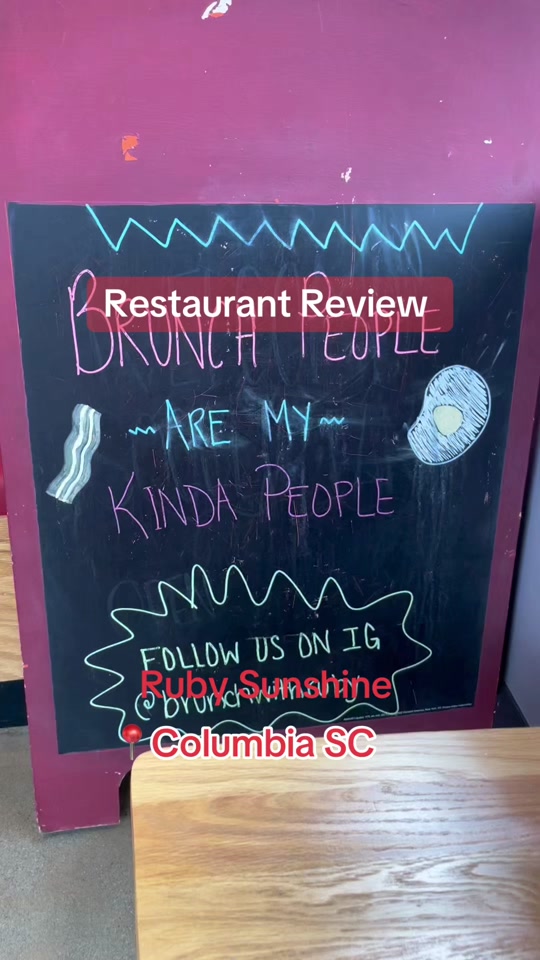 Restaurant Review
BRUNCH PEOPLE
~ARE MY~
KINDA PEOPLE
FOLLOW US ON IG
Ruby Sunshine
Columbia SC